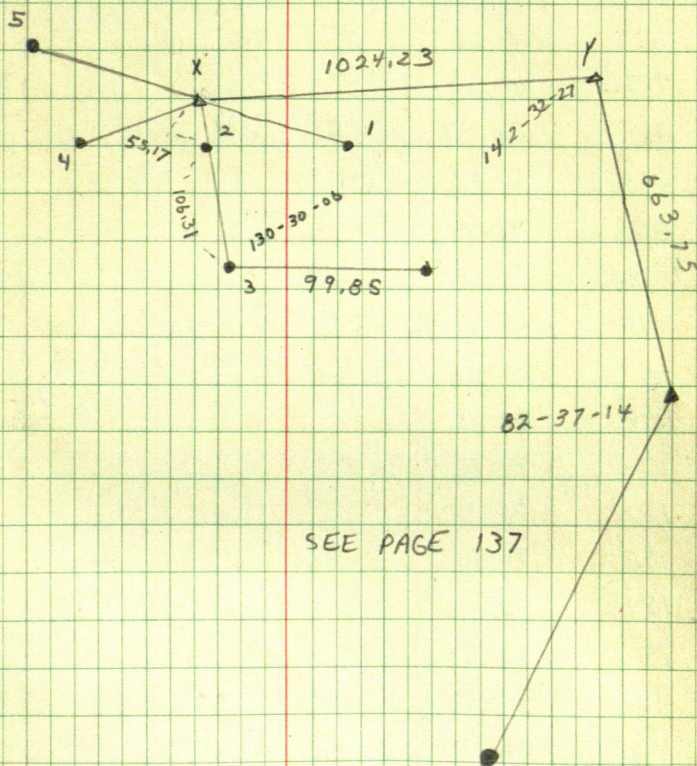 5
X
1024.23
Y
142-32-27
2
1
4
55.17
106.31
130-30-06
663.75
3
99.85
82-37-14
SEE PAGE 137